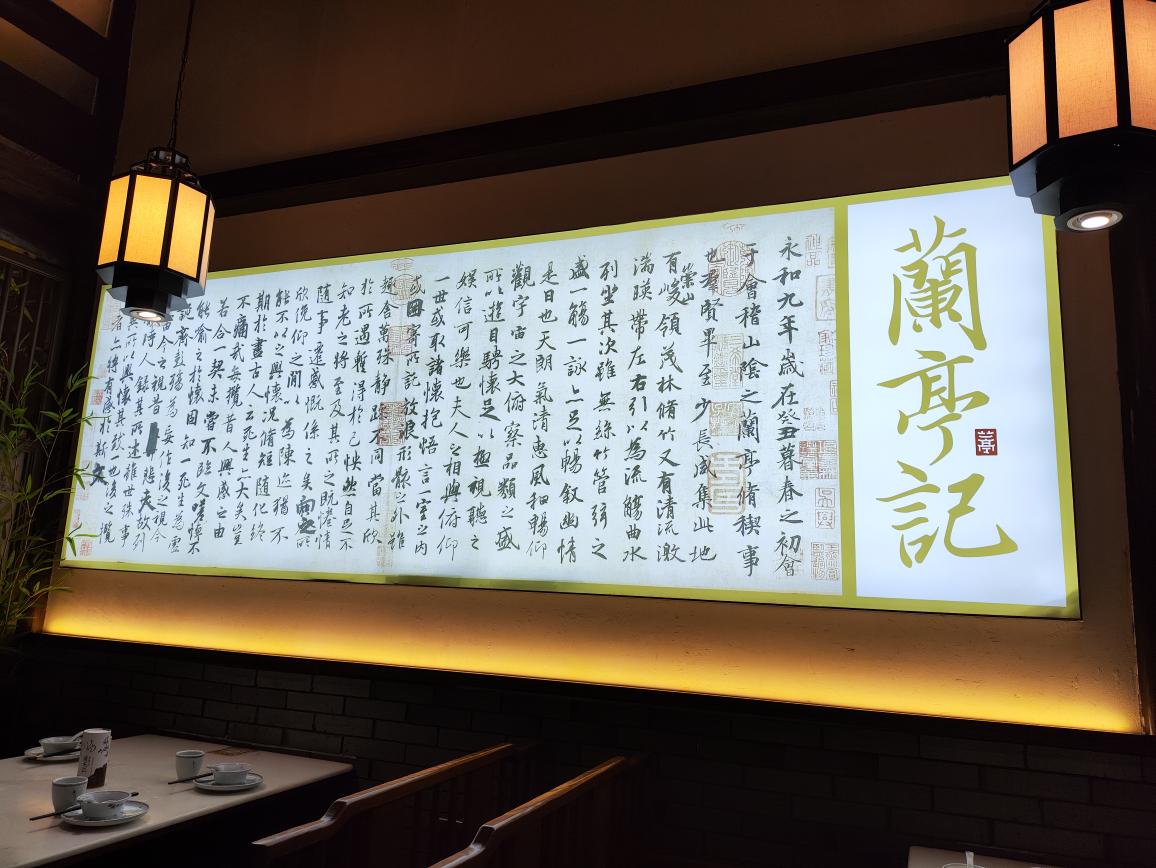 蘭亭記
蘭亭
永和九年歲在癸丑暮春之初會
于會稽山陰之蘭亭脩稧事
也羣賢畢至少長咸集此地
有崇山峻領茂林脩竹又有清流激
湍暎帶左右引以為流觴曲水
列坐其次雖無絲竹管弦之
盛一觴一詠亦足以暢敘幽情
是日也天朗氣清惠風和暢仰
觀宇宙之大俯察品類之盛
所以遊目騁懷足以極視聽之
娛信可樂也夫人之相與俯仰
一世或取諸懷抱悟言一室之內
或因寄所託放浪形骸之外雖
趣舍萬殊靜躁不同當其欣
於所遇蹔得於己怏然自足不
知老之將至及其所之既惓情
隨事遷感慨係之矣向之所
欣俛仰之閒以為陳迹猶不
能不以之興懷況脩短隨化終
期於盡古人云死生亦大矣豈
不痛哉每攬昔人興感之由
若合一契未嘗不臨文嗟悼不
能喻之於懷固知一死生為虛
誕齊彭殤為妄作後之視今
亦由今之視昔悲夫故列
敘時人錄其所述雖世殊事
異所以興懷其致一也後之攬
者亦將有感於斯文